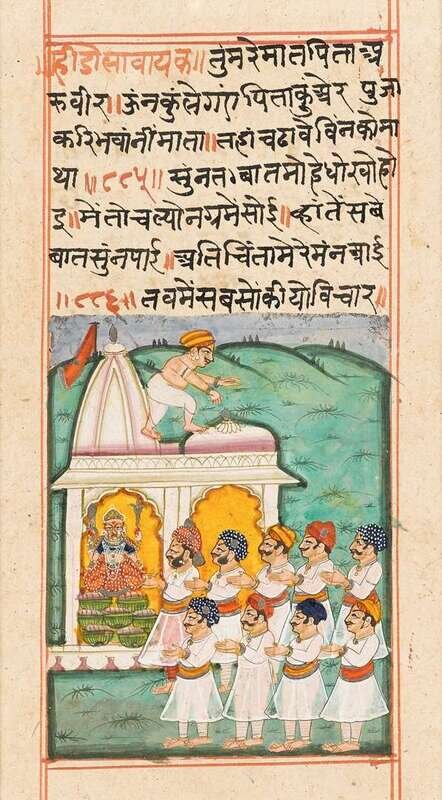 वायक॥तुंमरेमातपिताअ
रुवीर॥ऊंनकुंले पुजा
करिभवांनींमाता॥तहांचढावेविनकोमा
था॥८८५॥सुंनतबातमोहेधोखोहो
इ॥मेंतोचल्योनग्रमेंसोई॥व्हांतेंसब
बातसुंनपाई॥अतिचिंतामेरेमंनआई
॥८८६॥तबमेंसबसोंकीयोविचार॥